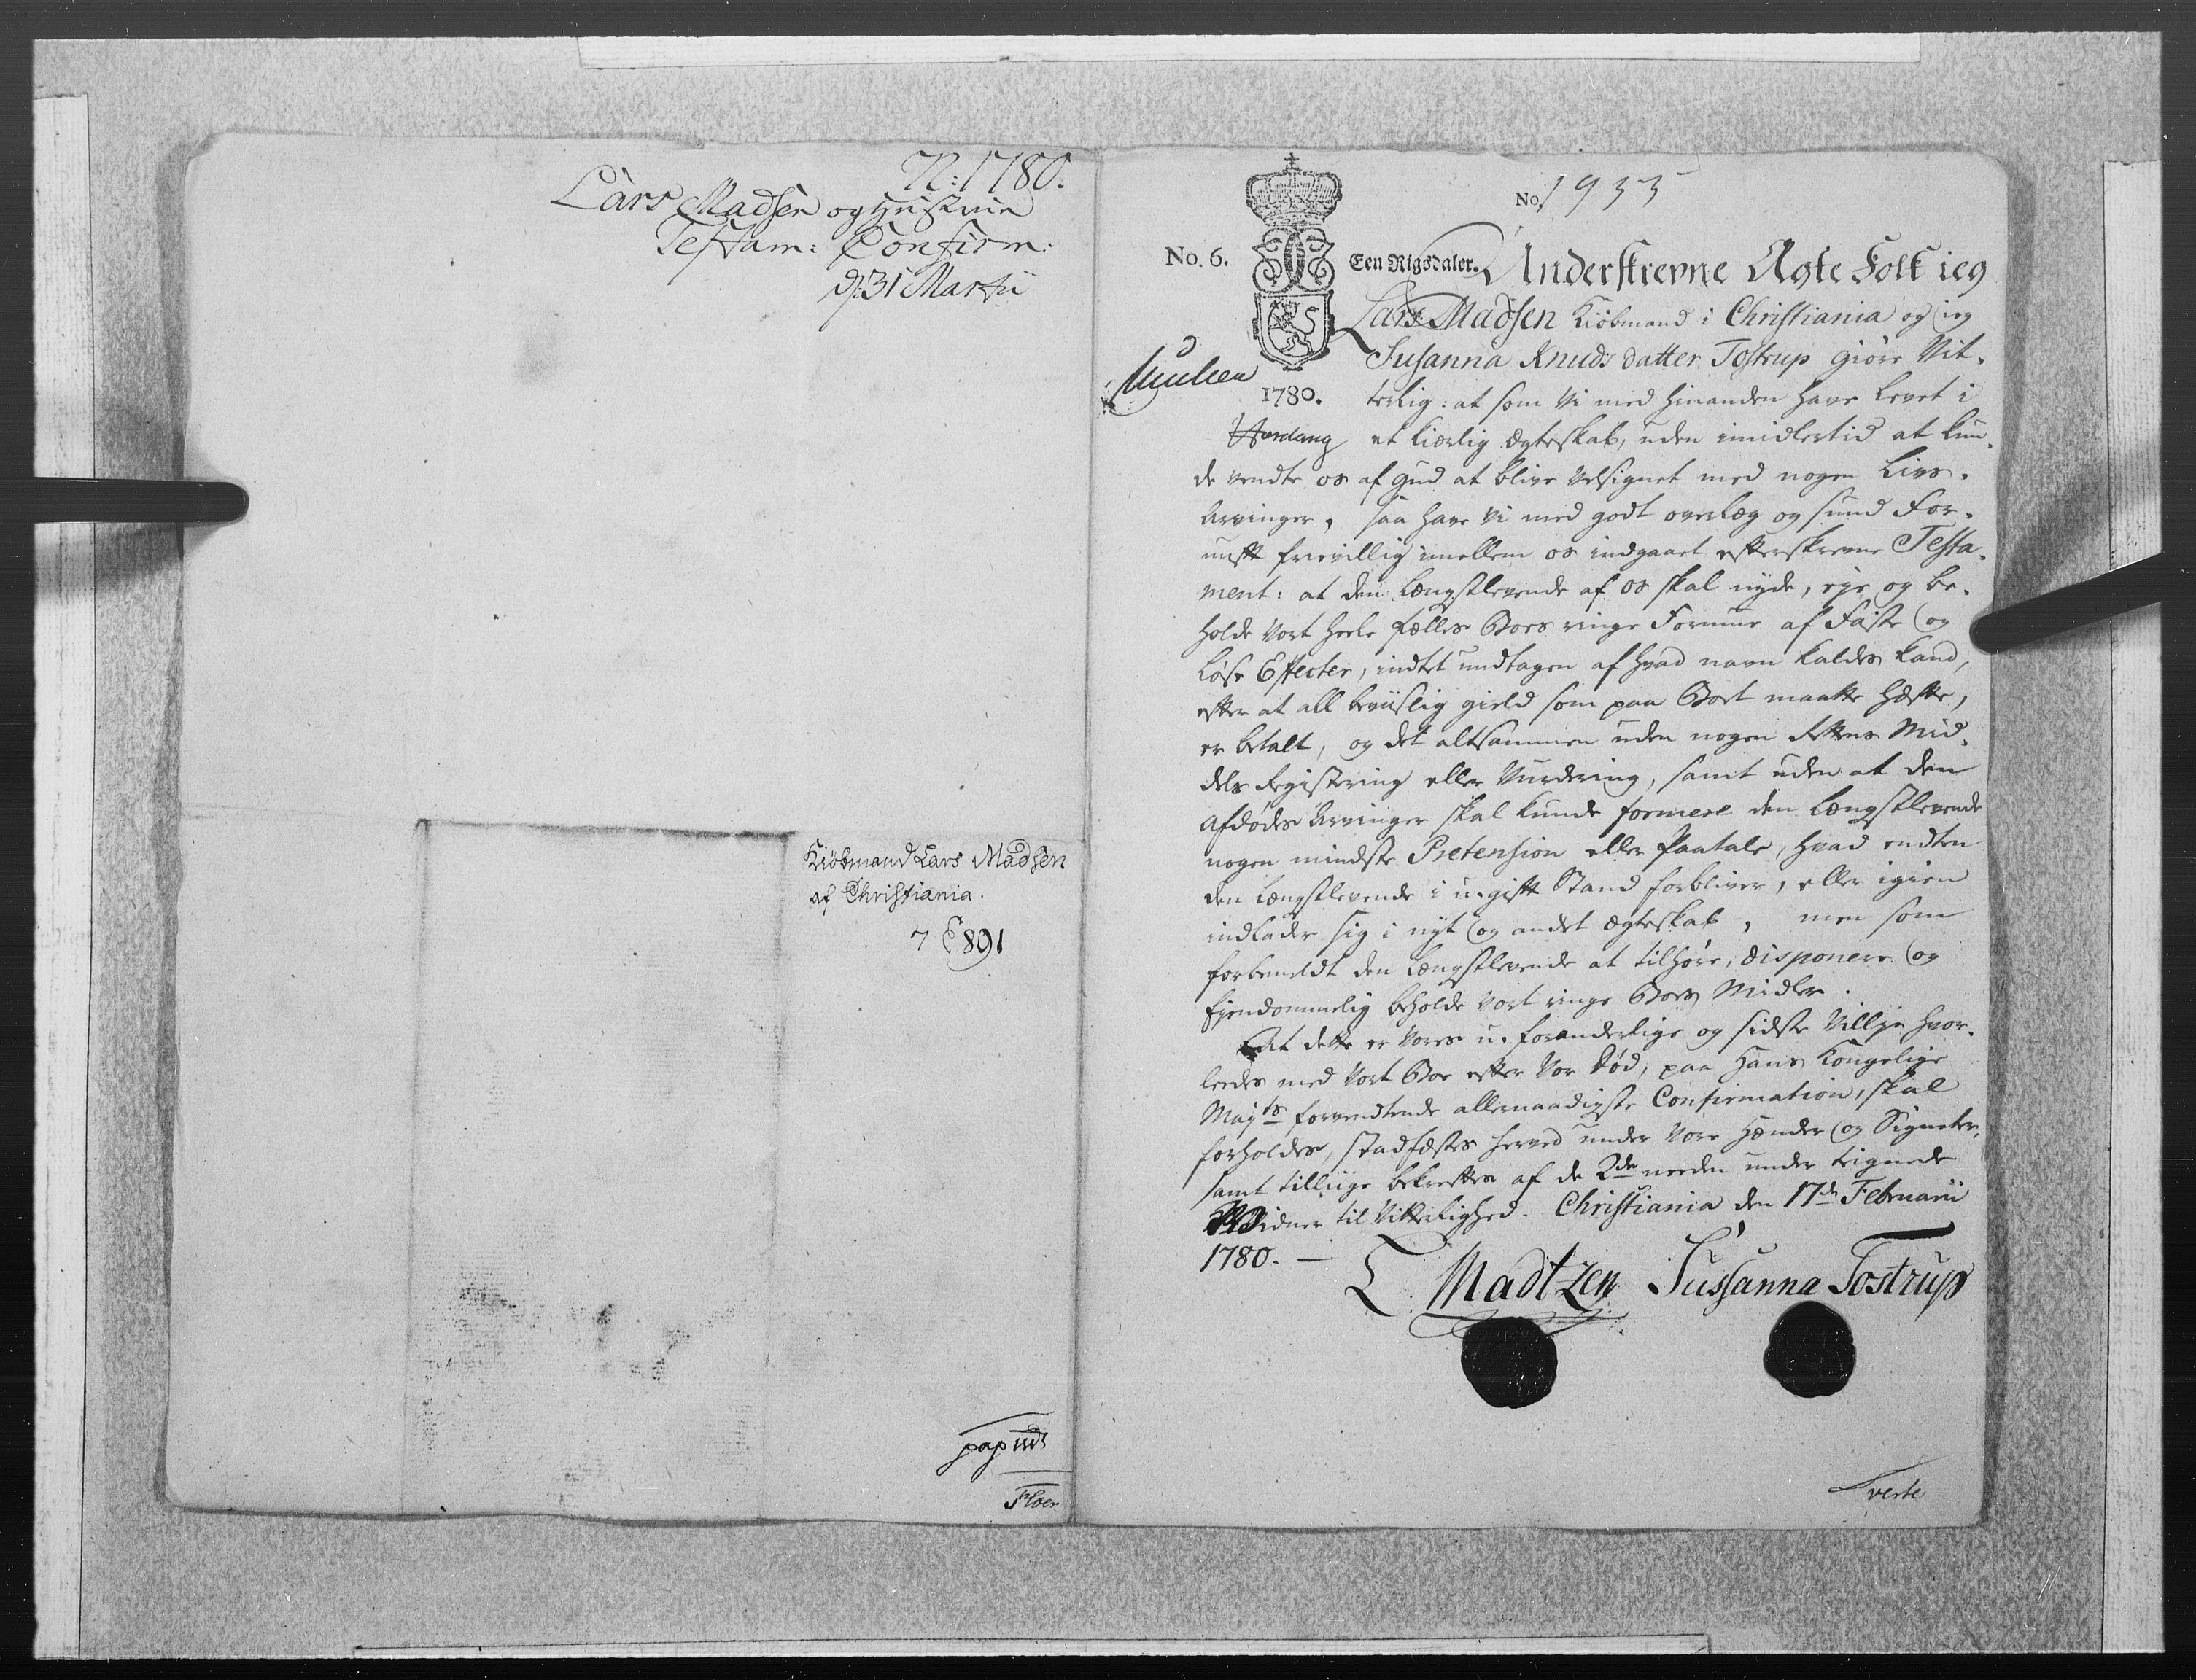 N: 1780.
Lars Madsen og Hustrue
Testam: Confirm:
d: 31 Martii
Kiöbmand Lars Madsen
af Christiania.
7 E 891
No. 1933
No. 6.
Een Rigsdaler.
Underskrevne Ægte Folk ieg
Lars Madsen Kiöbmand i Christiania og ieg
Susanna Knuds datter Tostrup giöre Vit-
1780.
terlig: at som Vi med hinanden have levet i
et kierlig Ægteskab, uden imidlertid at kun-
de vendte os af Gud at blive velsignet med nogen Livs-
Arvinger, saa have Vi med godt overlæg og sund For-
nuft frievillig imellem os indgaaet efterskrevne Testa-
ment: at den Længstlevende af os skal nyde, eye og be-
holde Vort heele Fælles Boes ringe Formue af Faste og
Løse Effecter, indtet undtagen af hvad navn kaldes kand,
efter at all beviislig gield som paa Boet maatte hæfte,
er betalt, og det altsammen uden nogen Rettens Mid-
dels Registering eller Vurdering, samt uden at den
Afdödes Arvinger skal kunde formere den Længstlevende
nogen mindste Prætension eller Paatale, hvad endten
den Længstlevende i u-gift Stand forbliver, eller igien
indlader sig i nyt og andet Ægteskab, men som
forbemeldt den Længstlevende at tilhöre, disponere og
Eyendommelig beholde Vort ringe Boes Midler.
At dette er Vores u-foranderlige og sidste Villje hvor-
leedes med Vort Boe efter Vor Död, paa Hans Kongelige
Mayts forvendtende allernaadigste Confirmation, skal
forholdes, stadfæstes herved under Vore Hænder og Signeter,
samt tilliige bekræftes af de 2de neden under teignede
Vidner til Vitterlighed. Christiania den 17de Februarii
1780. —
L. Madtzen Sussanna Tostrup
verte